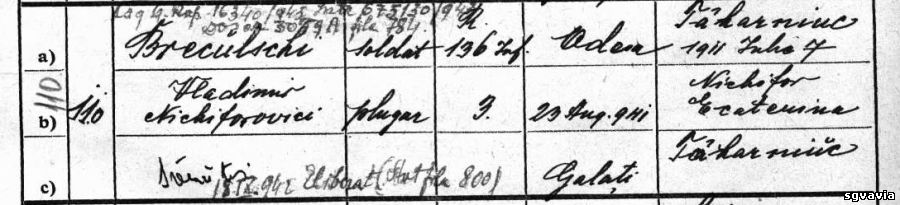 Lag G. Rap. 16340/942 Intr 675/30/942
Dosar 3059A fila 784
a) Breculschi soldat R. 136 Inf. Odesa Țăharniuc 1911 Iulie 7
110 b) 110 Vladimir Nichiforovici plugar 3. 23 Aug. 941 Nichifor Ecaterina
c) 942 Eliberat (Art fila 800) Galați Țăharniuc
sgvavia